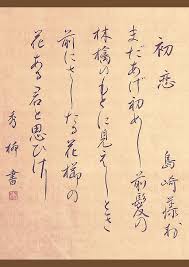 初恋
島崎藤村
まだあげ初めし前髪の
林檎のもとに見えしとき
前にさしたる花櫛の
花ある君と思ひけり
秀柳書